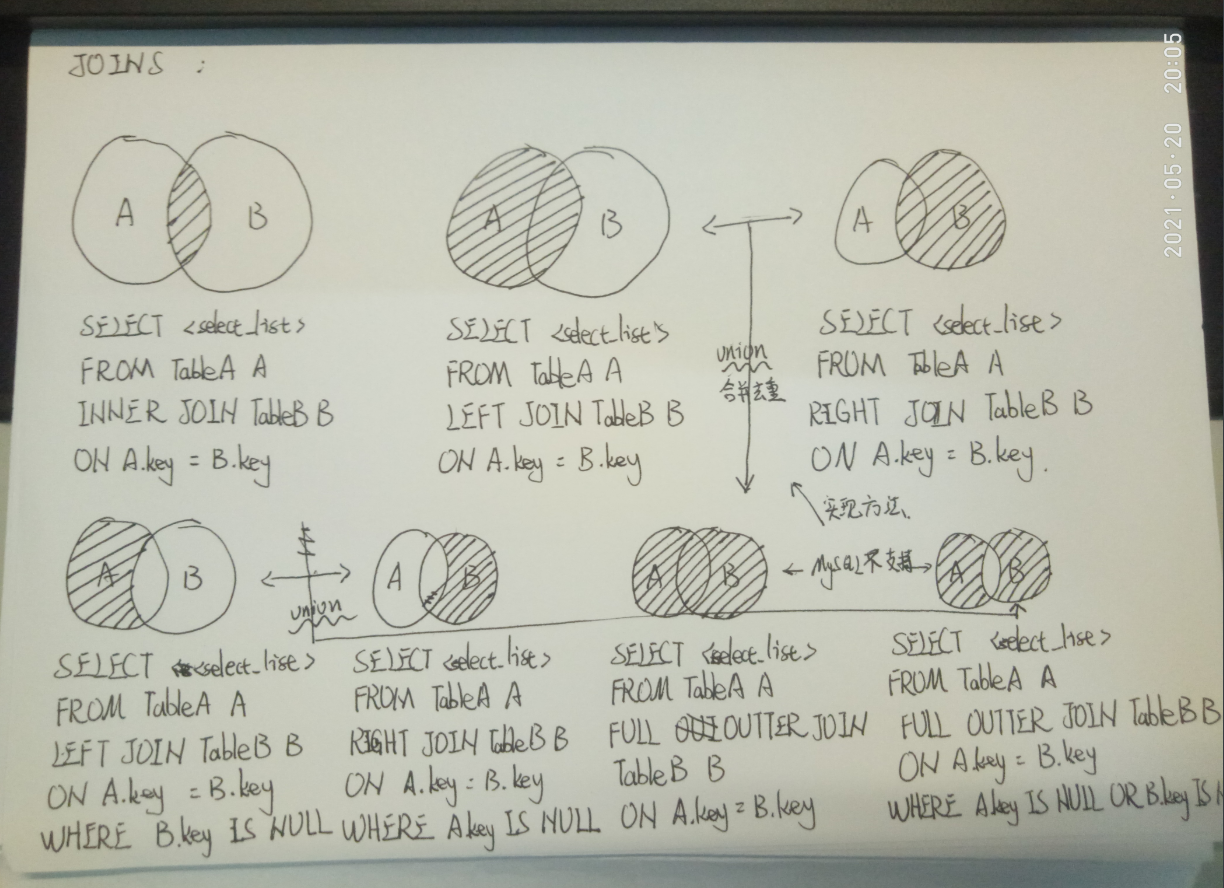 JOINS :
2021.05.20 20:05
A B
SELECT <select_list>
FROM TableA A
INNER JOIN TableB B
ON A.key = B.key
A B
SELECT <select_list>
FROM TableA A
LEFT JOIN TableB B
ON A.key = B.key
union
合并去重
A B
SELECT <select_list>
FROM TableA A
RIGHT JOIN TableB B
ON A.key = B.key.
实现方法
A B
SELECT <select_list>
FROM TableA A
LEFT JOIN TableB B
ON A.key = B.key
WHERE B.key IS NULL
union
A B
SELECT <select_list>
FROM TableA A
RIGHT JOIN TableB B
ON A.key = B.key
WHERE A.key IS NULL
A B
SELECT <select_list>
FROM TableA A
FULL OUTTER JOIN
TableB B
ON A.key = B.key
MySQL不支持
A B
SELECT <select_list>
FROM TableA A
FULL OUTTER JOIN TableB B
ON A.key = B.key
WHERE A.key IS NULL OR B.key IS